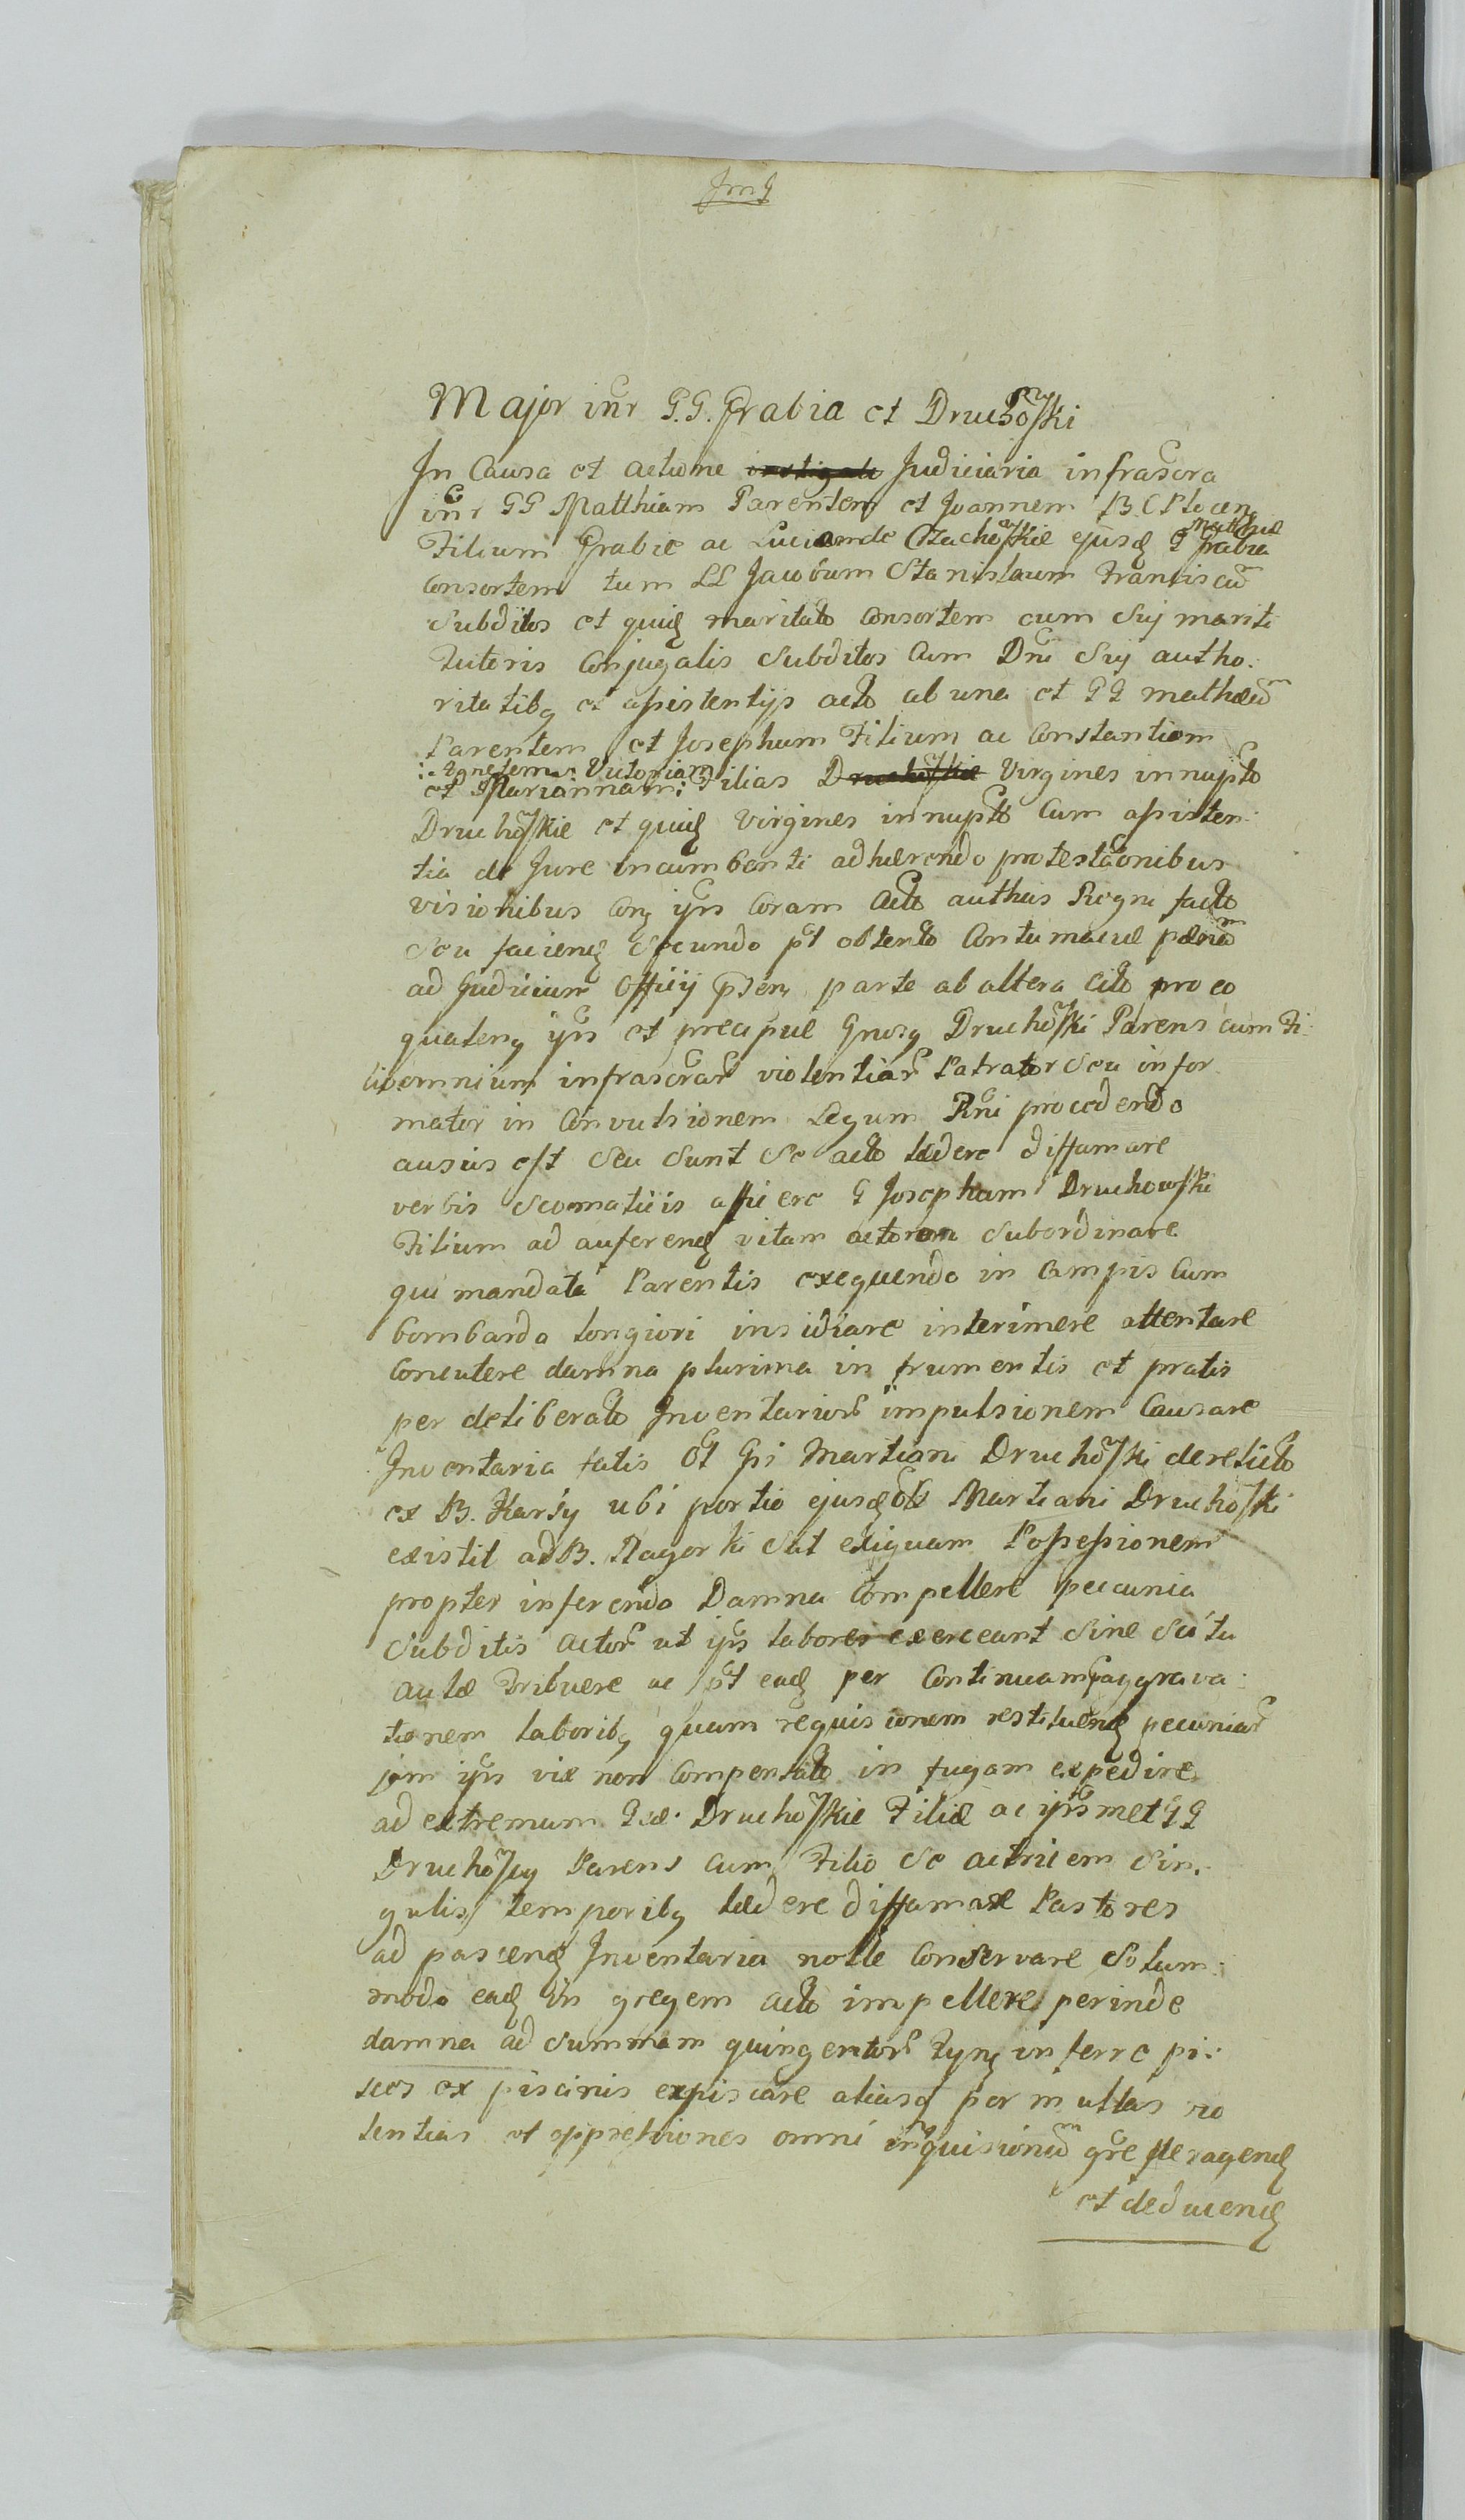 JmJ
Major intr G.G. Grabia et Druchowski
In Causa et actione Judiciaria infrascra
intr GG Matthiam Parentem et Joannem B. C Plocen
Filium Grabie ac Lucia de Czachoskie ejusq G Matthie Grabia
Consortem tum LL Jacobum Stanislaum Franciscu
Subditos et quid maritato Consortem cum Suj mariti
Tutoris Conjugalis Subditos Cum Dni Suj autho.
ritatibq et assistentijs acto ab una et GG mathæu
Parentem et Josephum Filium ac Constantiam
:Agnetem: Victoriam
et Mariannam: Filias Druchoskie Virgines innupto
Druchoskie et quid Virgines innupto Cum assisten:
tia de Jure incumbenti adhærendo protestaonibus
visionibus Conq ijrs Coram Acto authcis Regni facto
Seu faciend Secundo pt obtento Contumaciæ pænam
ad Judicium Officij psens parte ab altera Cito pro eo
quatenq ijrs et precipue Gnosq Druchoski Parens cum Fi:
lio omnium infrascrar violentiar Patrator Seu infor
mator in Convulsionem Legum Rni procedendo
ausus est Seu Sunt Se acto lædere diffamare
verbis Scomaticis afficere G Josephum Druchowski
Filium ad auferend vitam actorom Subordinare
qui mandata Parentis exequendo in Campis Cum
bombarda longiori insidiare interimere attentare
Concutere damna plurima in frumentis et pratis
per deliberato Inventarior impulsionem Causare
Inventaria fatis Ol Gsi Martiani Druchoski derelicto
ex B. Karsy ubi portio ejusd Ol Martiani Druchoski
existit ad B. Nagorki Sat exiguam Possessionem
propter inferendo Damna Compellere pecunia
Subditis actor ut ijrs labores exerceant Sine Scitu
aulæ tribuere ac pt ead per Continuam aggrava:
tionem laboribq quam requisionem restituend pecuniar
jam ijrs vix non Compensato in fugam expedire
ad extremum Gsæ Druchoskie Filiæ ac ijrsmet GG
Druchoscy Parens cum Filio Se actricem Sin:
gulis temporibq lædere diffamare Pastores
ad pascend Inventaria nolle Conservare Solum:
modo ead in gregem acto impellere perinde
damna ad Summam quingentor Fynq inferre pi:
sces ex piscinis expiscare aliasq per multas vio
lentias et oppressiones omni inquisionem gre peragend
et deducend